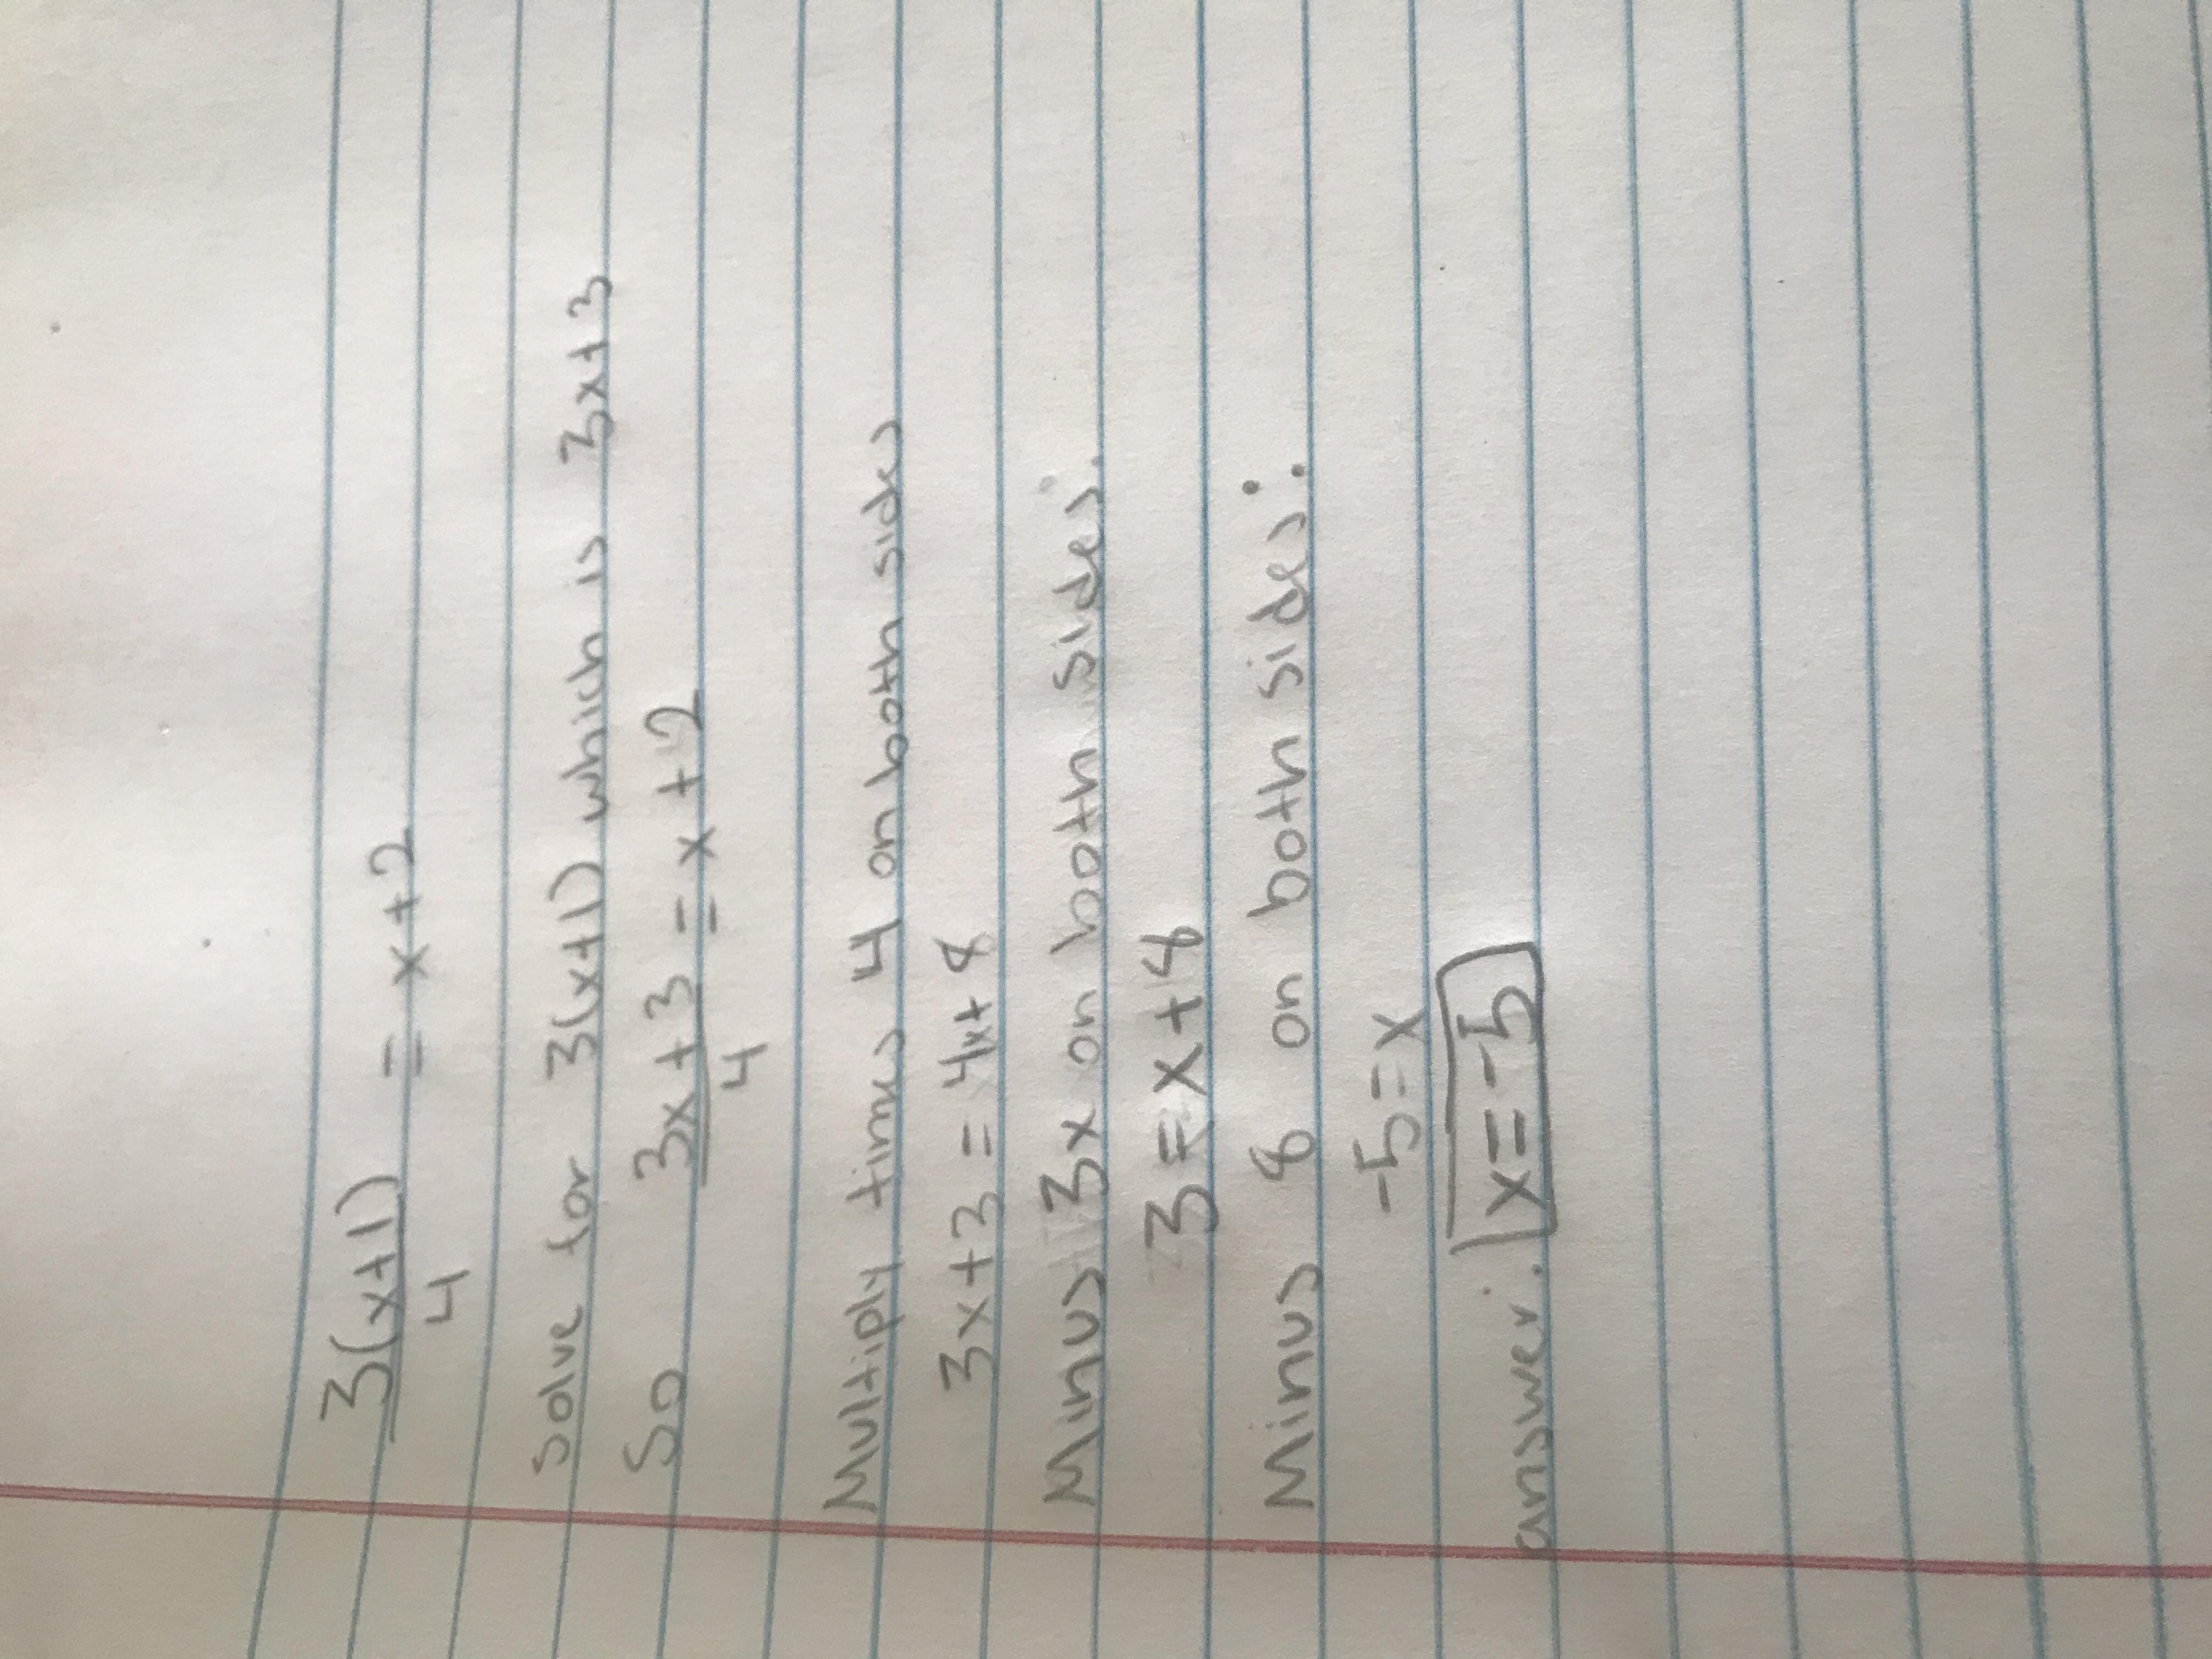 3(x+1) = x+2
4
solve for 3(x+1) which is 3x+3
So 3x+3 = x+2
4
Multiply times 4 on both sides
3x+3 = 4x+8
Minus 3x on both sides:
3 = x+8
Minus 8 on both sides:
-5=x
answer: x=-5